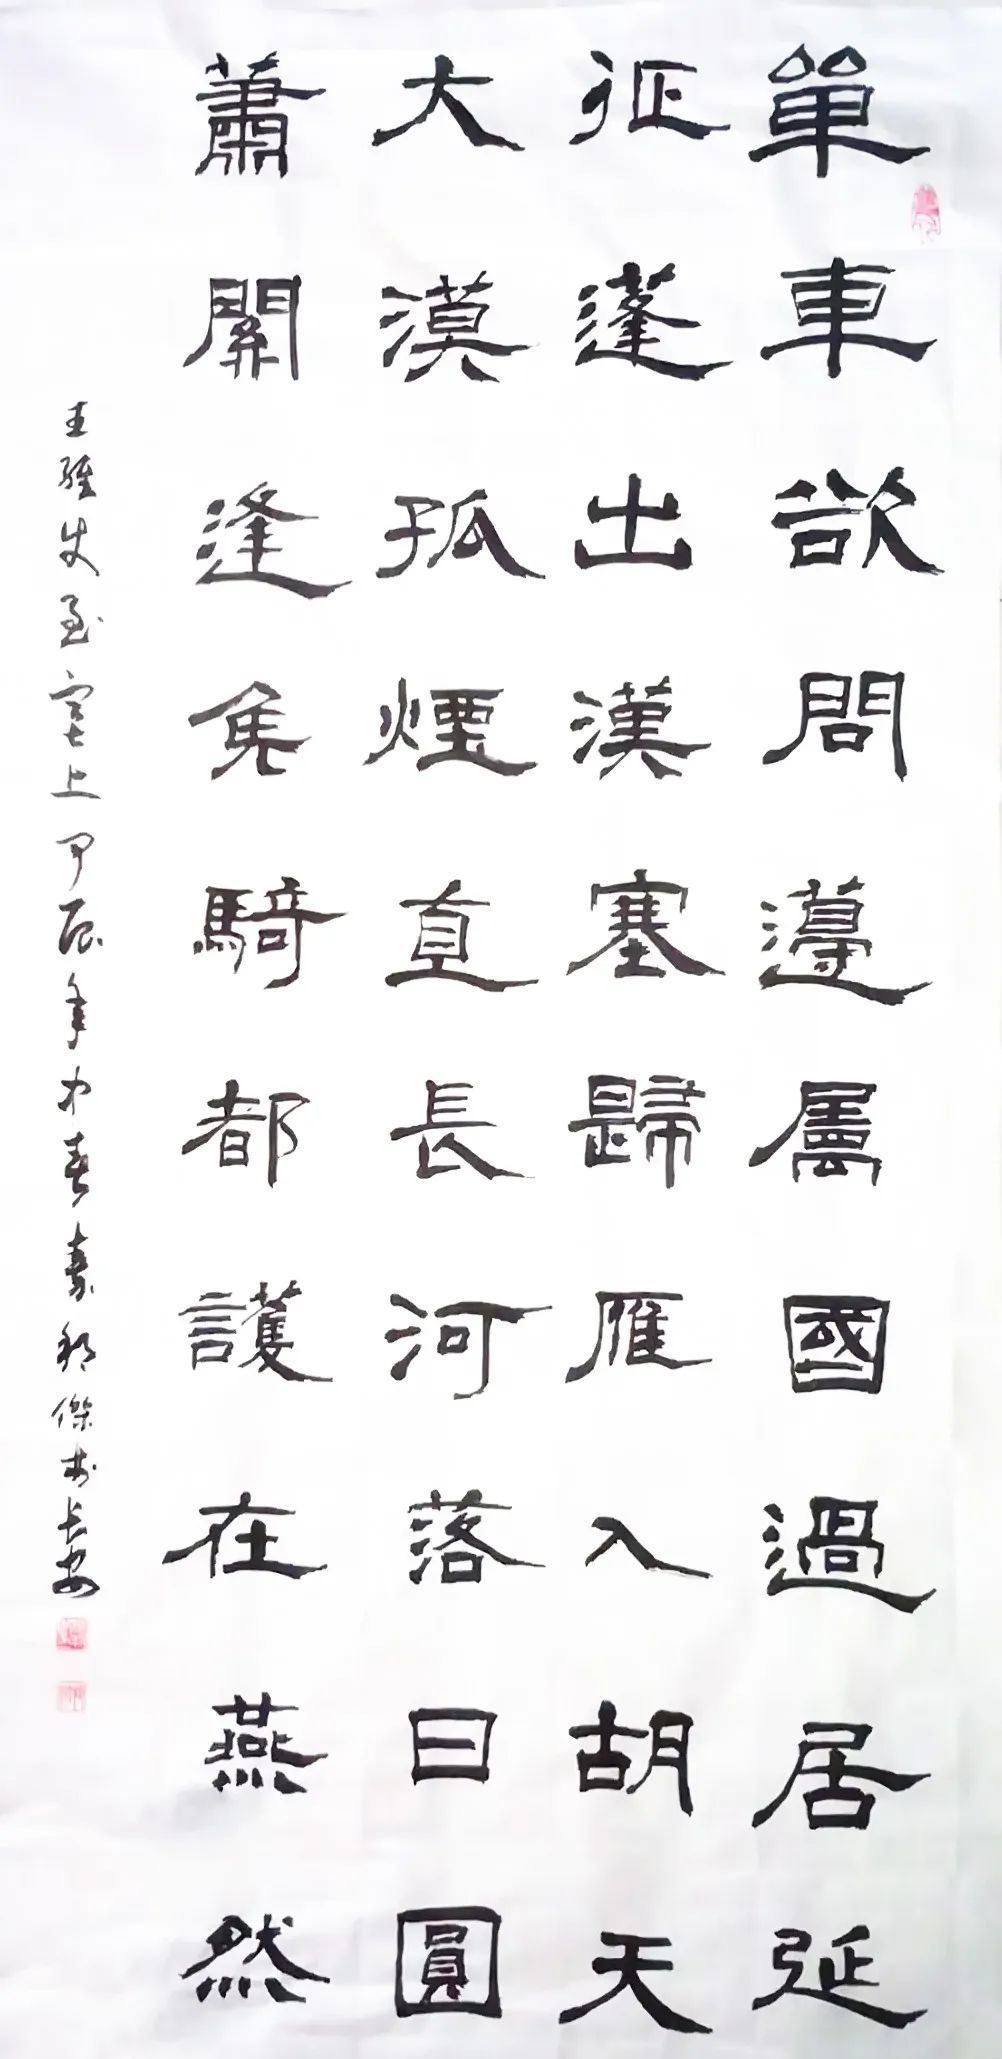 單車欲問邊屬國過居延
征蓬出漢塞歸雁入胡天
大漠孤煙直長河落日圓
蕭關逢騎都護在燕然
王維使至塞上甲辰年中春傑於長安